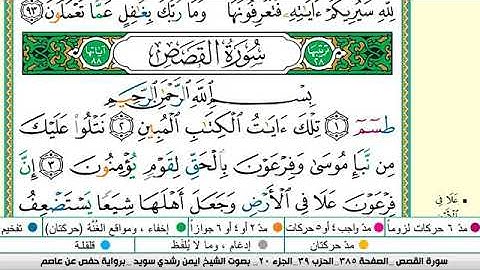 لِلَّهِ سَيُرِيكُمْ ءَايَٰتِهِۦ فَتَعْرِفُونَهَا وَمَا رَبُّكَ بِغَٰفِلٍ عَمَّا تَعْمَلُونَ ٩٣
ترتيبها ٢٨ سُورَةُ القَصَصِ آياتها ٨٨
بِسْمِ ٱللَّهِ ٱلرَّحْمَٰنِ ٱلرَّحِيمِ
طسٓمٓ ١ تِلْكَ ءَايَٰتُ ٱلْكِتَٰبِ ٱلْمُبِينِ ٢ نَتْلُوا۟ عَلَيْكَ
مِن نَّبَإِ مُوسَىٰ وَفِرْعَوْنَ بِٱلْحَقِّ لِقَوْمٍ يُؤْمِنُونَ ٣ إِنَّ
فِرْعَوْنَ عَلَا فِى ٱلْأَرْضِ وَجَعَلَ أَهْلَهَا شِيَعًا يَسْتَضْعِفُ
عَلَا فِي
مدّ ٦ حركات لزوماً مدّ واجب ٤ أو ٥ حركات مدّ ٢ أو ٤ أو ٦ جوازاً إخفاء، ومواقع الغُنَّة (حركتان) تفخيم
مدّ حركتان إدغام، وما لا يُلفَظ قلقلة
سورة القصص _ الصفحة ٣٨٥_ الحزب ٣٩_ الجزء ٢٠_ بصوت الشيخ ايمن رشدي سويد _ برواية حفص عن عاصم